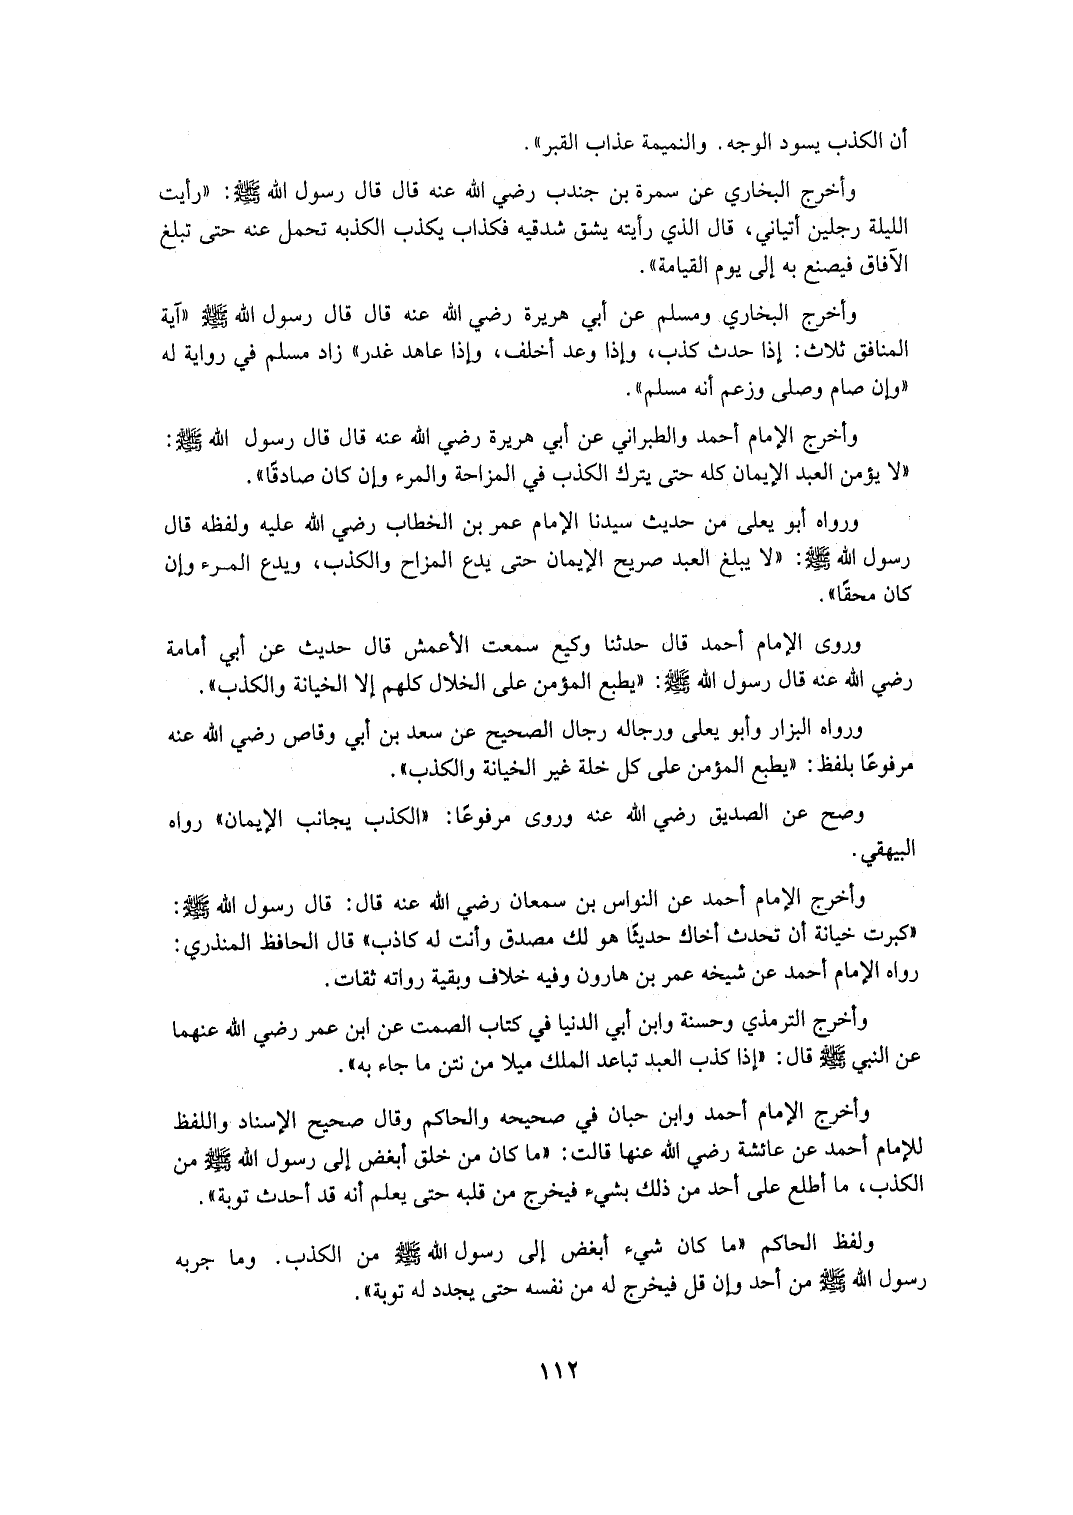 أن الكذب يسود الوجه. والنميمة عذاب القبر».
وأخرج البخاري عن سمرة بن جندب رضي الله عنه قال قال رسول الله ﷺ: «رأيت
الليلة رجلين أتياني، قال الذي رأيته يشق شدقيه فكذاب يكذب الكذبه تحمل عنه حتى تبلغ
الآفاق فيصنع به إلى يوم القيامة».
وأخرج البخاري ومسلم عن أبي هريرة رضي الله عنه قال قال رسول الله ﷺ «آية
المنافق ثلاث: إذا حدث كذب، وإذا وعد أخلف، وإذا عاهد غدر» زاد مسلم في رواية له
«وإن صام وصلى وزعم أنه مسلم».
وأخرج الإمام أحمد والطبراني عن أبي هريرة رضي الله عنه قال قال رسول الله ﷺ:
«لا يؤمن العبد الإيمان كله حتى يترك الكذب في المزاحة والمرء وإن كان صادقًا».
ورواه أبو يعلى من حديث سيدنا الإمام عمر بن الخطاب رضي الله عليه ولفظه قال
رسول الله ﷺ: «لا يبلغ العبد صريح الإيمان حتى يدع المزاح والكذب، ويدع المرء وإن
كان محقًا».
وروى الإمام أحمد قال حدثنا وكيع سمعت الأعمش قال حديث عن أبي أمامة
رضي الله عنه قال رسول الله ﷺ: «يطبع المؤمن على الخلال كلهم إلا الخيانة والكذب».
ورواه البزار وأبو يعلى ورجاله رجال الصحيح عن سعد بن أبي وقاص رضي الله عنه
مرفوعًا بلفظ: «يطبع المؤمن على كل خلة غير الخيانة والكذب».
وصح عن الصديق رضي الله عنه وروى مرفوعًا: «الكذب يجانب الإيمان» رواه
البيهقي.
وأخرج الإمام أحمد عن النواس بن سمعان رضي الله عنه قال: قال رسول الله ﷺ:
«كبرت خيانة أن تحدث أخاك حديثًا هو لك مصدق وأنت له كاذب» قال الحافظ المنذري:
رواه الإمام أحمد عن شيخه عمر بن هارون وفيه خلاف وبقية رواته ثقات.
وأخرج الترمذي وحسنة وابن أبي الدنيا في كتاب الصمت عن ابن عمر رضي الله عنهما
عن النبي ﷺ قال: «إذا كذب العبد تباعد الملك ميلا من نتن ما جاء به».
وأخرج الإمام أحمد وابن حبان في صحيحه والحاكم وقال صحيح الإسناد واللفظ
للإمام أحمد عن عائشة رضي الله عنها قالت: «ما كان من خلق أبغض إلى رسول الله ﷺ من
الكذب، ما أطلع على أحد من ذلك بشيء فيخرج من قلبه حتى يعلم أنه قد أحدث توبة».
ولفظ الحاكم «ما كان شيء أبغض إلى رسول الله ﷺ من الكذب. وما جربه
رسول الله ﷺ من أحد وإن قل فيخرج له من نفسه حتى يجدد له توبة».
١١٢